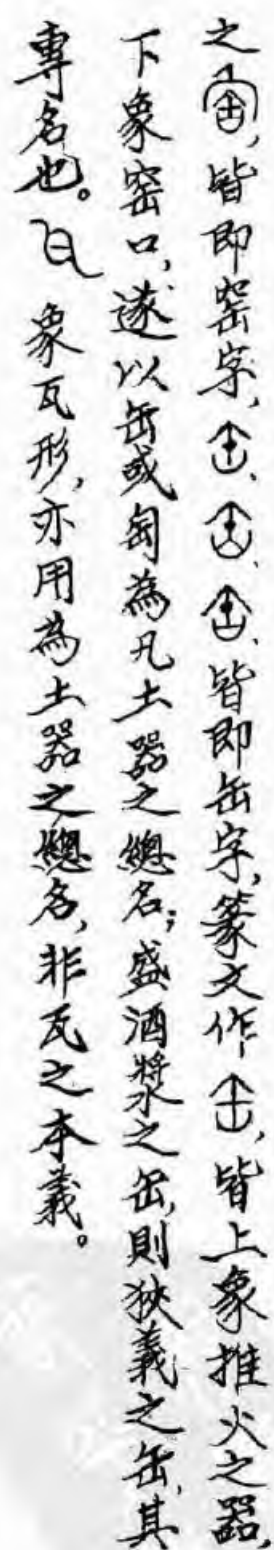 之，皆即窑字，、、、皆即缶字，篆文作，皆上象推火之器，
下象窑口，遂以缶或匋為凡土器之總名；盛酒漿之缶，則狹義之缶，其
專名也。象瓦形，亦用為土器之總名，非瓦之本義。